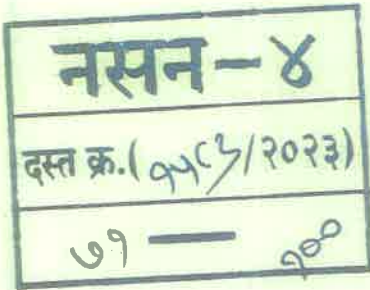 नसन-४
दस्त क्र.( /२०२३)
७१ — १००